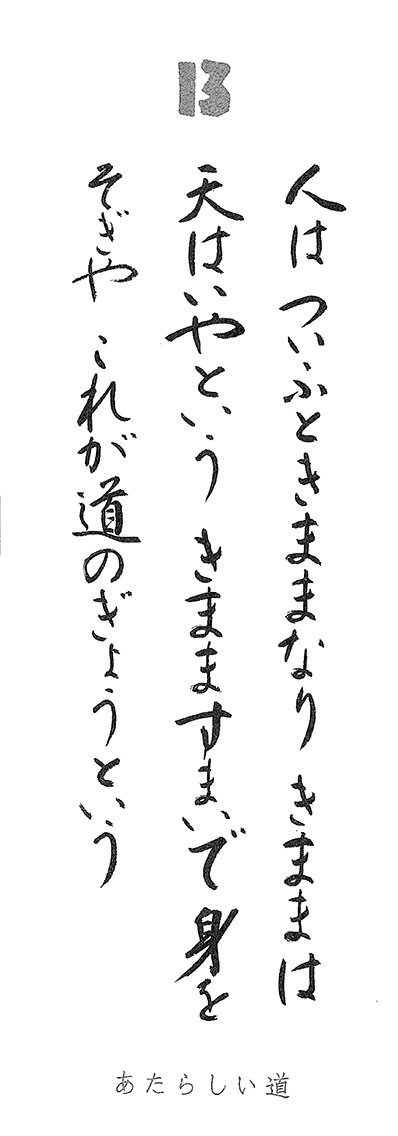 13
人は ついふときままなり きままは
天はいやという きまますまいで 身を
そぎや これが道のぎょうという
あたらしい道